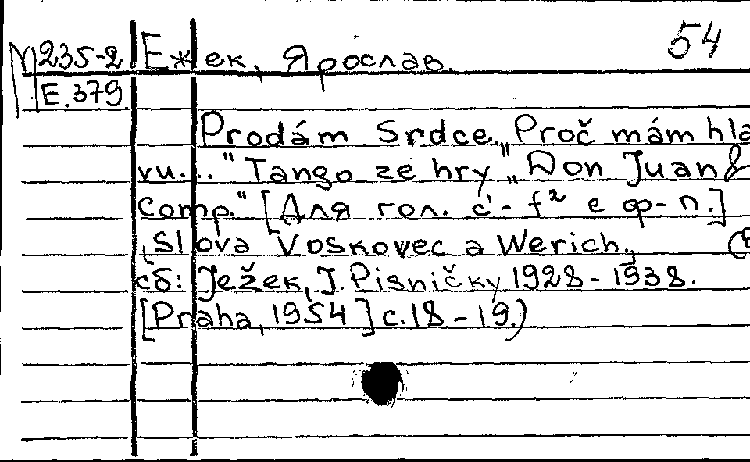 54
М235-2 Ежек, Ярослав.
Е.379
Prodám Srdce. „Proč mám hla
vu..." Tango ze hry „Don Juan &
Comp." [Для гол. c'-f² с ф-п.]
Slova Voskovec a Werich. (В
сб: Ježek, J. Pisničky 1928-1938.
[Praha, 1954] с.18-19.)